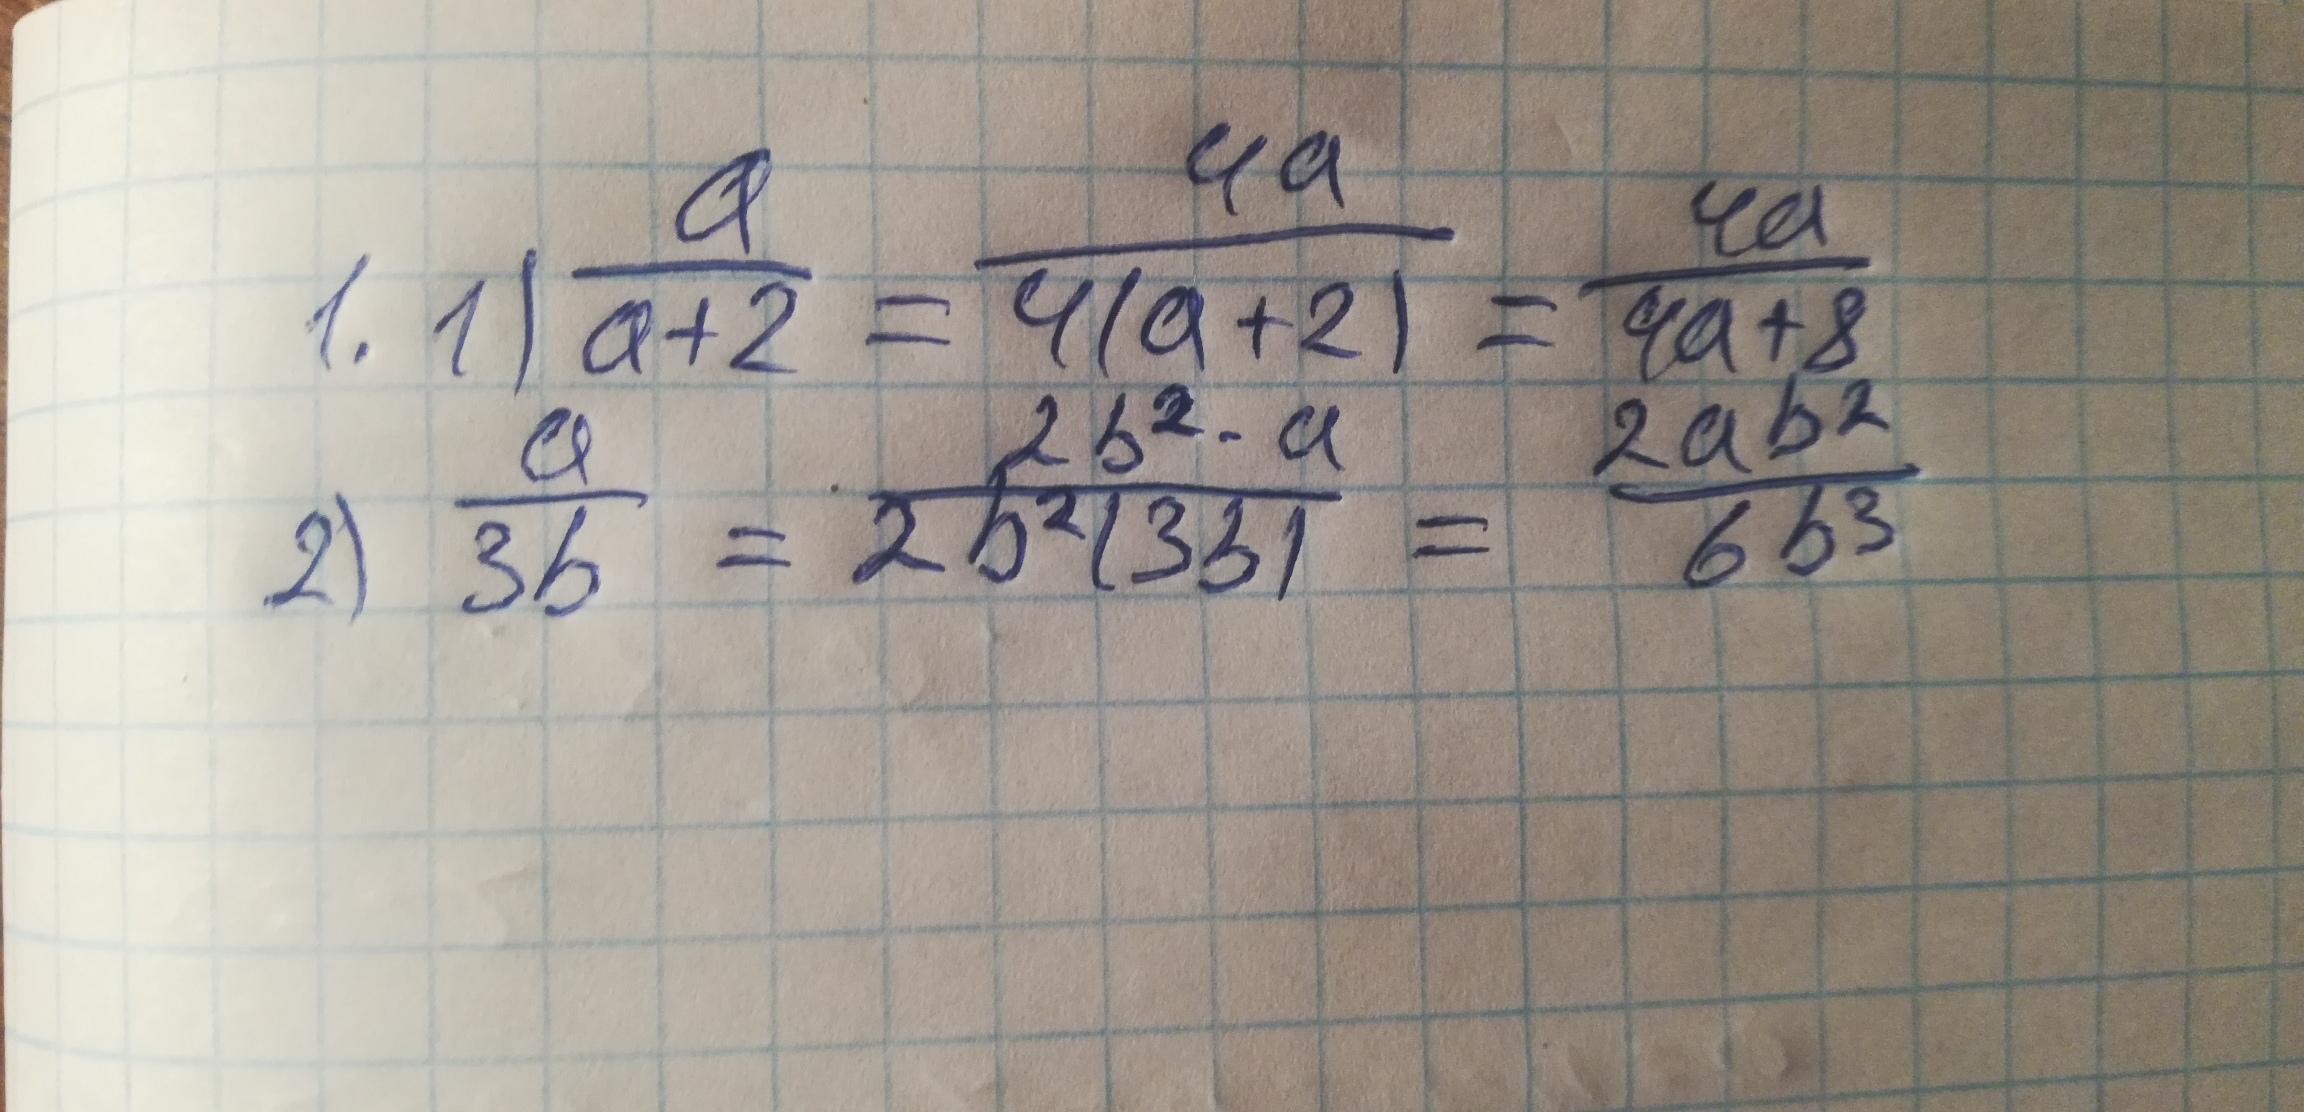 1. 1) a/(a+2) = 4a/(4(a+2)) = 4a/(4a+8)
2) a/(3b) = (2b²·a)/(2b²(3b)) = 2ab²/(6b³)